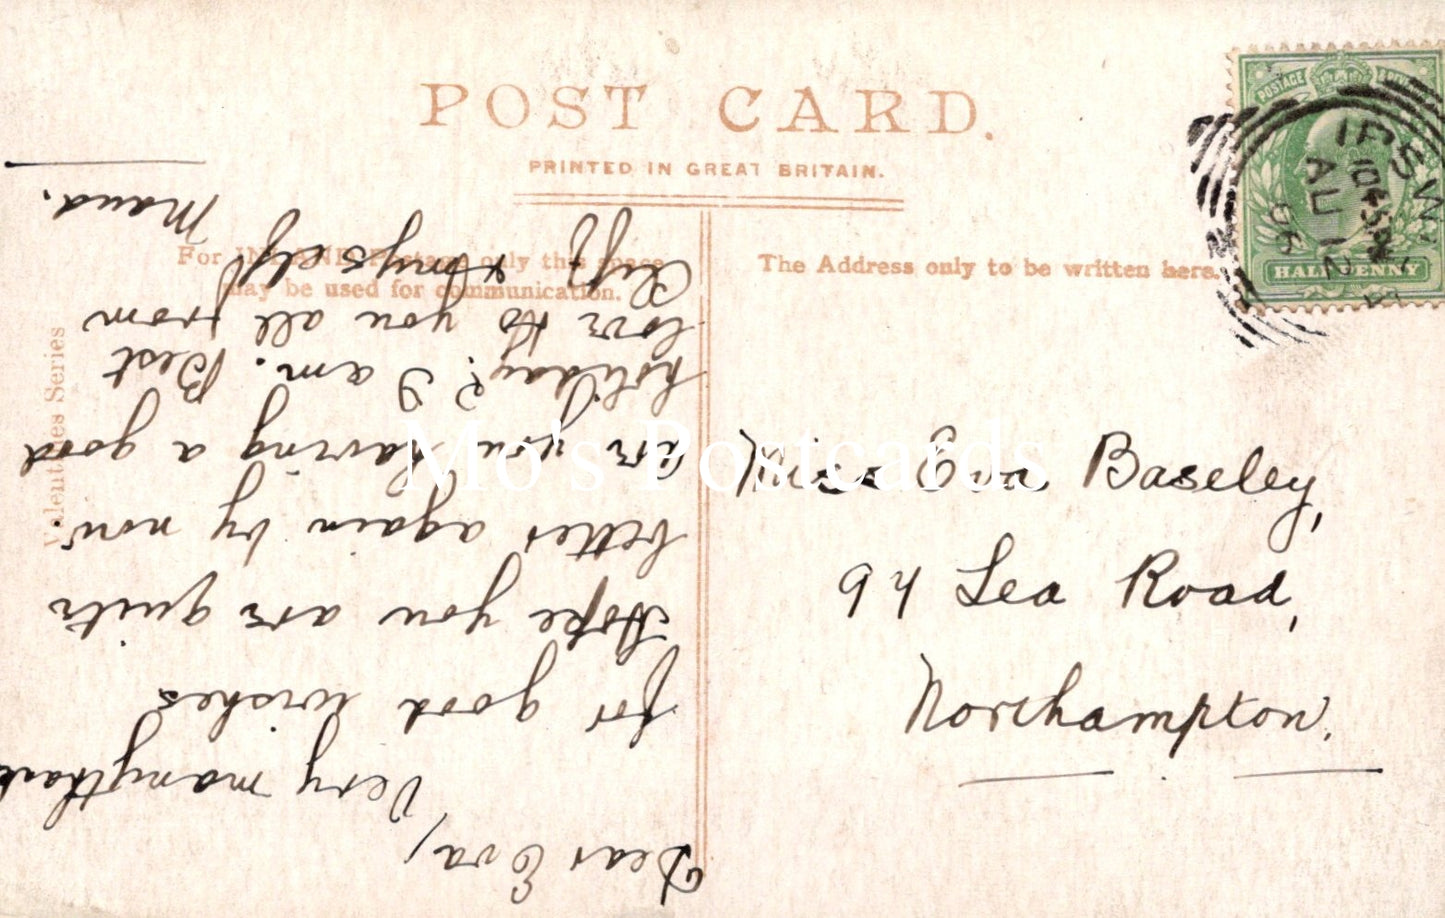 POST CARD.
PRINTED IN GREAT BRITAIN.
For INLAND Postage only this space
may be used for communication.
The Address only to be written here.
Valentines Series
POSTAGE
HALFPENNY
IPSWI
10 45
AU 12
06
Miss Eva Baseley,
94 Lea Road,
Northampton.
Dear Eva,
Very many thanks
for good wishes
Hope you are quite
better again by now.
are you having a good
holiday? I am. Best
love to you all from
Cliff
& myself
Maud.
Mo's Postcards